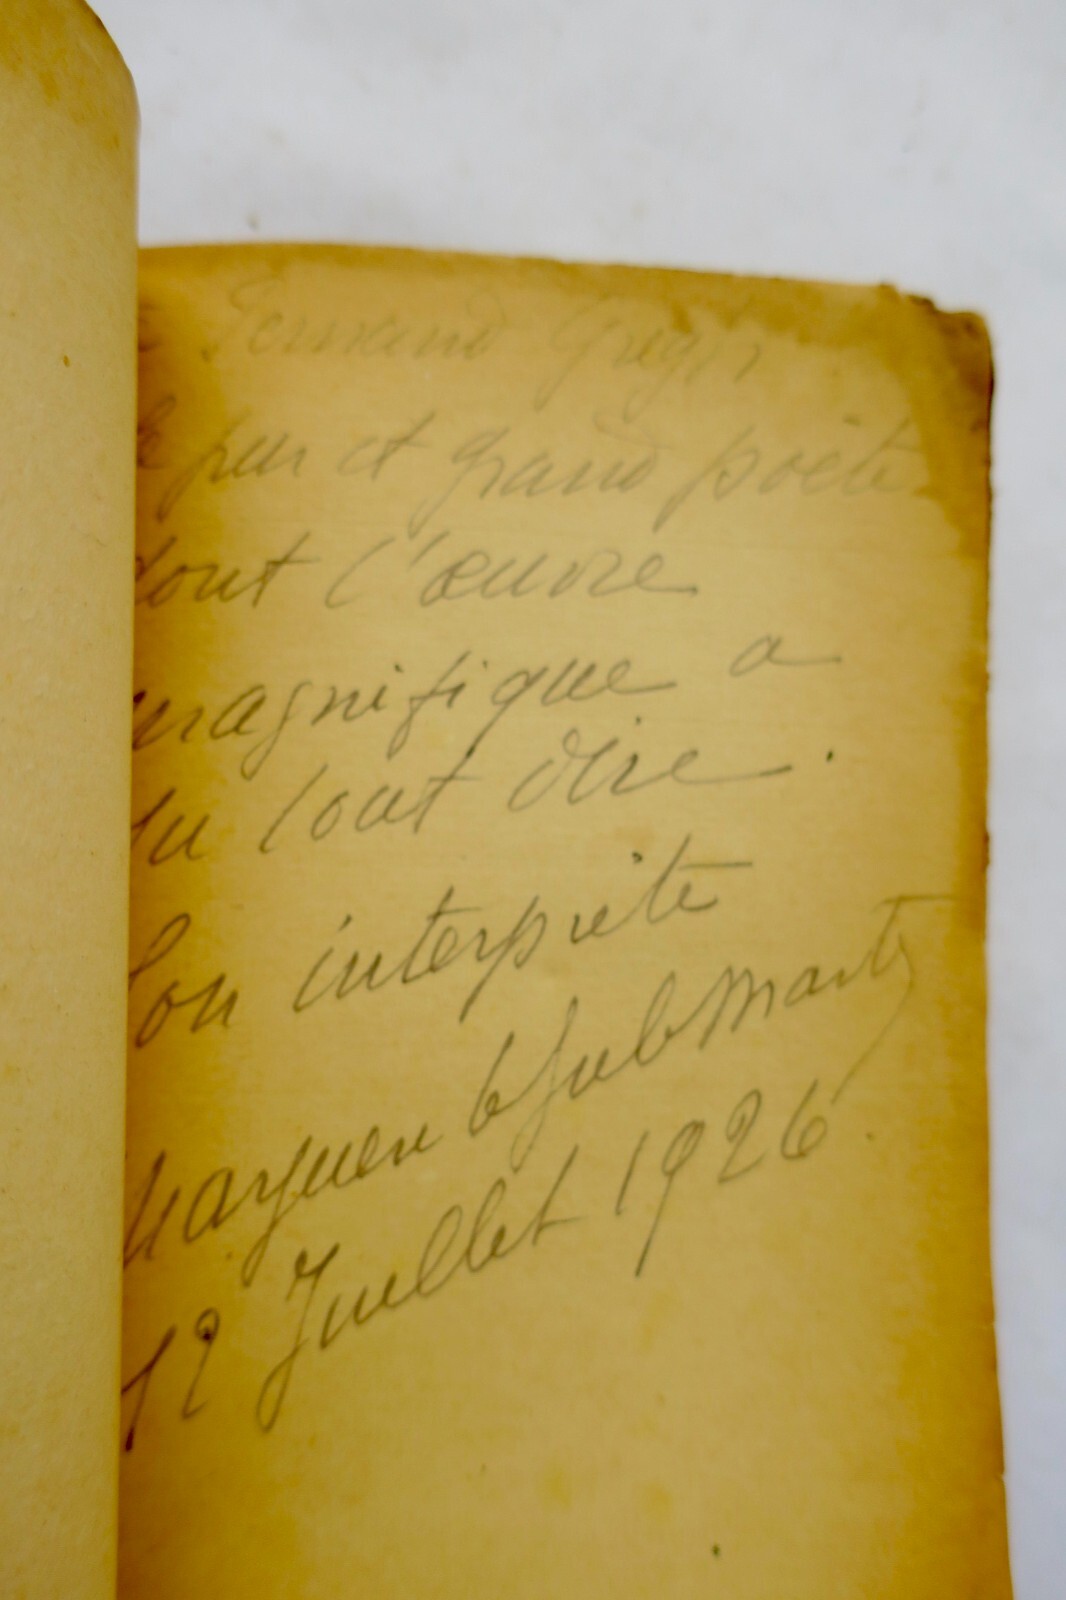 Fernand Gregh
le pur et grand poète
dont l'œuvre
magnifique a
su tout dire.
Son interprète
12 Juillet 1926.